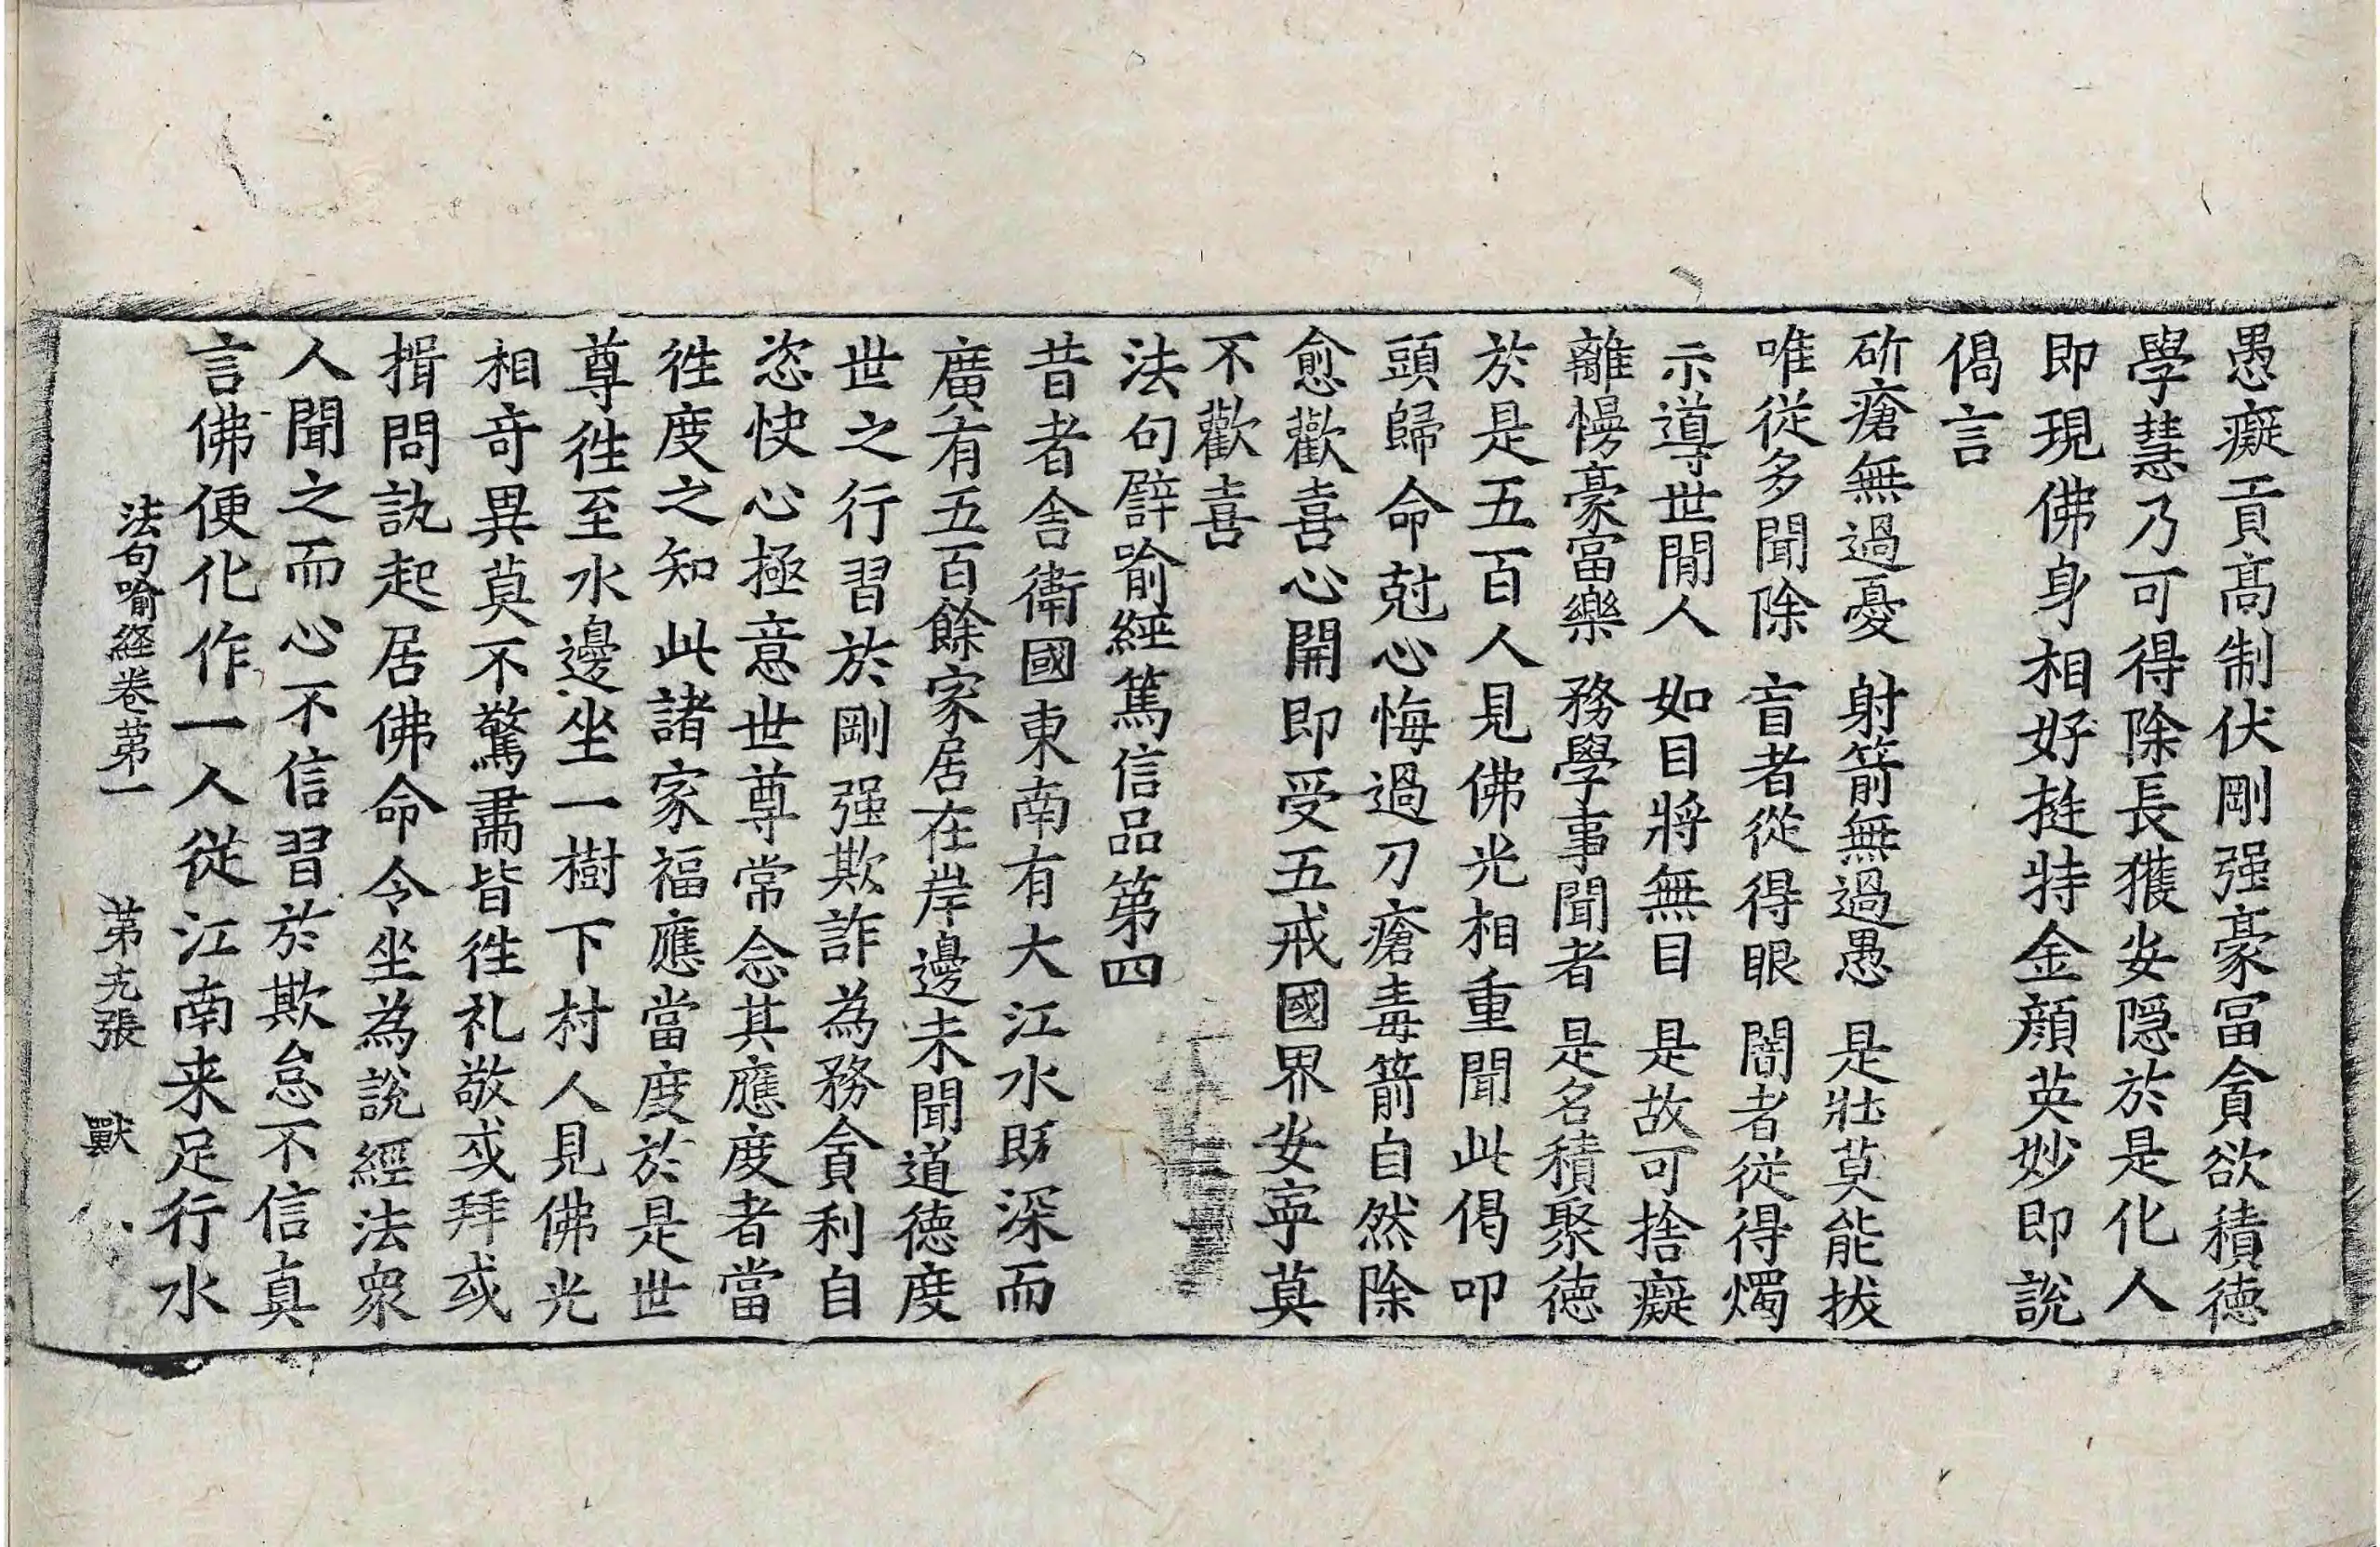 愚癡貢高制伏剛强豪冨貪欲積德
學慧乃可得除長獲安隠於是化人
即現佛身相好挺特金顔英妙即說
偈言
斫瘡無過憂 射箭無過愚 是壯莫能拔
唯從多聞除 盲者從得眼 闇者從得燭
示導世間人 如目將無目 是故可捨癡
離慢豪富樂 務學事聞者 是名積聚德
於是五百人見佛光相重聞此偈叩
頭歸命剋心悔過刀瘡毒箭自然除
愈歡喜心開即受五戒國界安寧莫
不歡喜
法句譬喻經篤信品第四
昔者舍衛國東南有大江水既深而
廣有五百餘家居在岸邊未聞道德度
世之行習於剛强欺詐為務貪利自
恣快心極意世尊常念其應度者當
徃度之知此諸家福應當度於是世
尊徃至水邊坐一樹下村人見佛光
相奇異莫不驚肅皆徃礼敬或拜或
揖問訊起居佛命令坐為說經法衆
人聞之而心不信習於欺怠不信真
言佛便化作一人從江南来足行水
法句喻経卷苐一 苐九張 獸